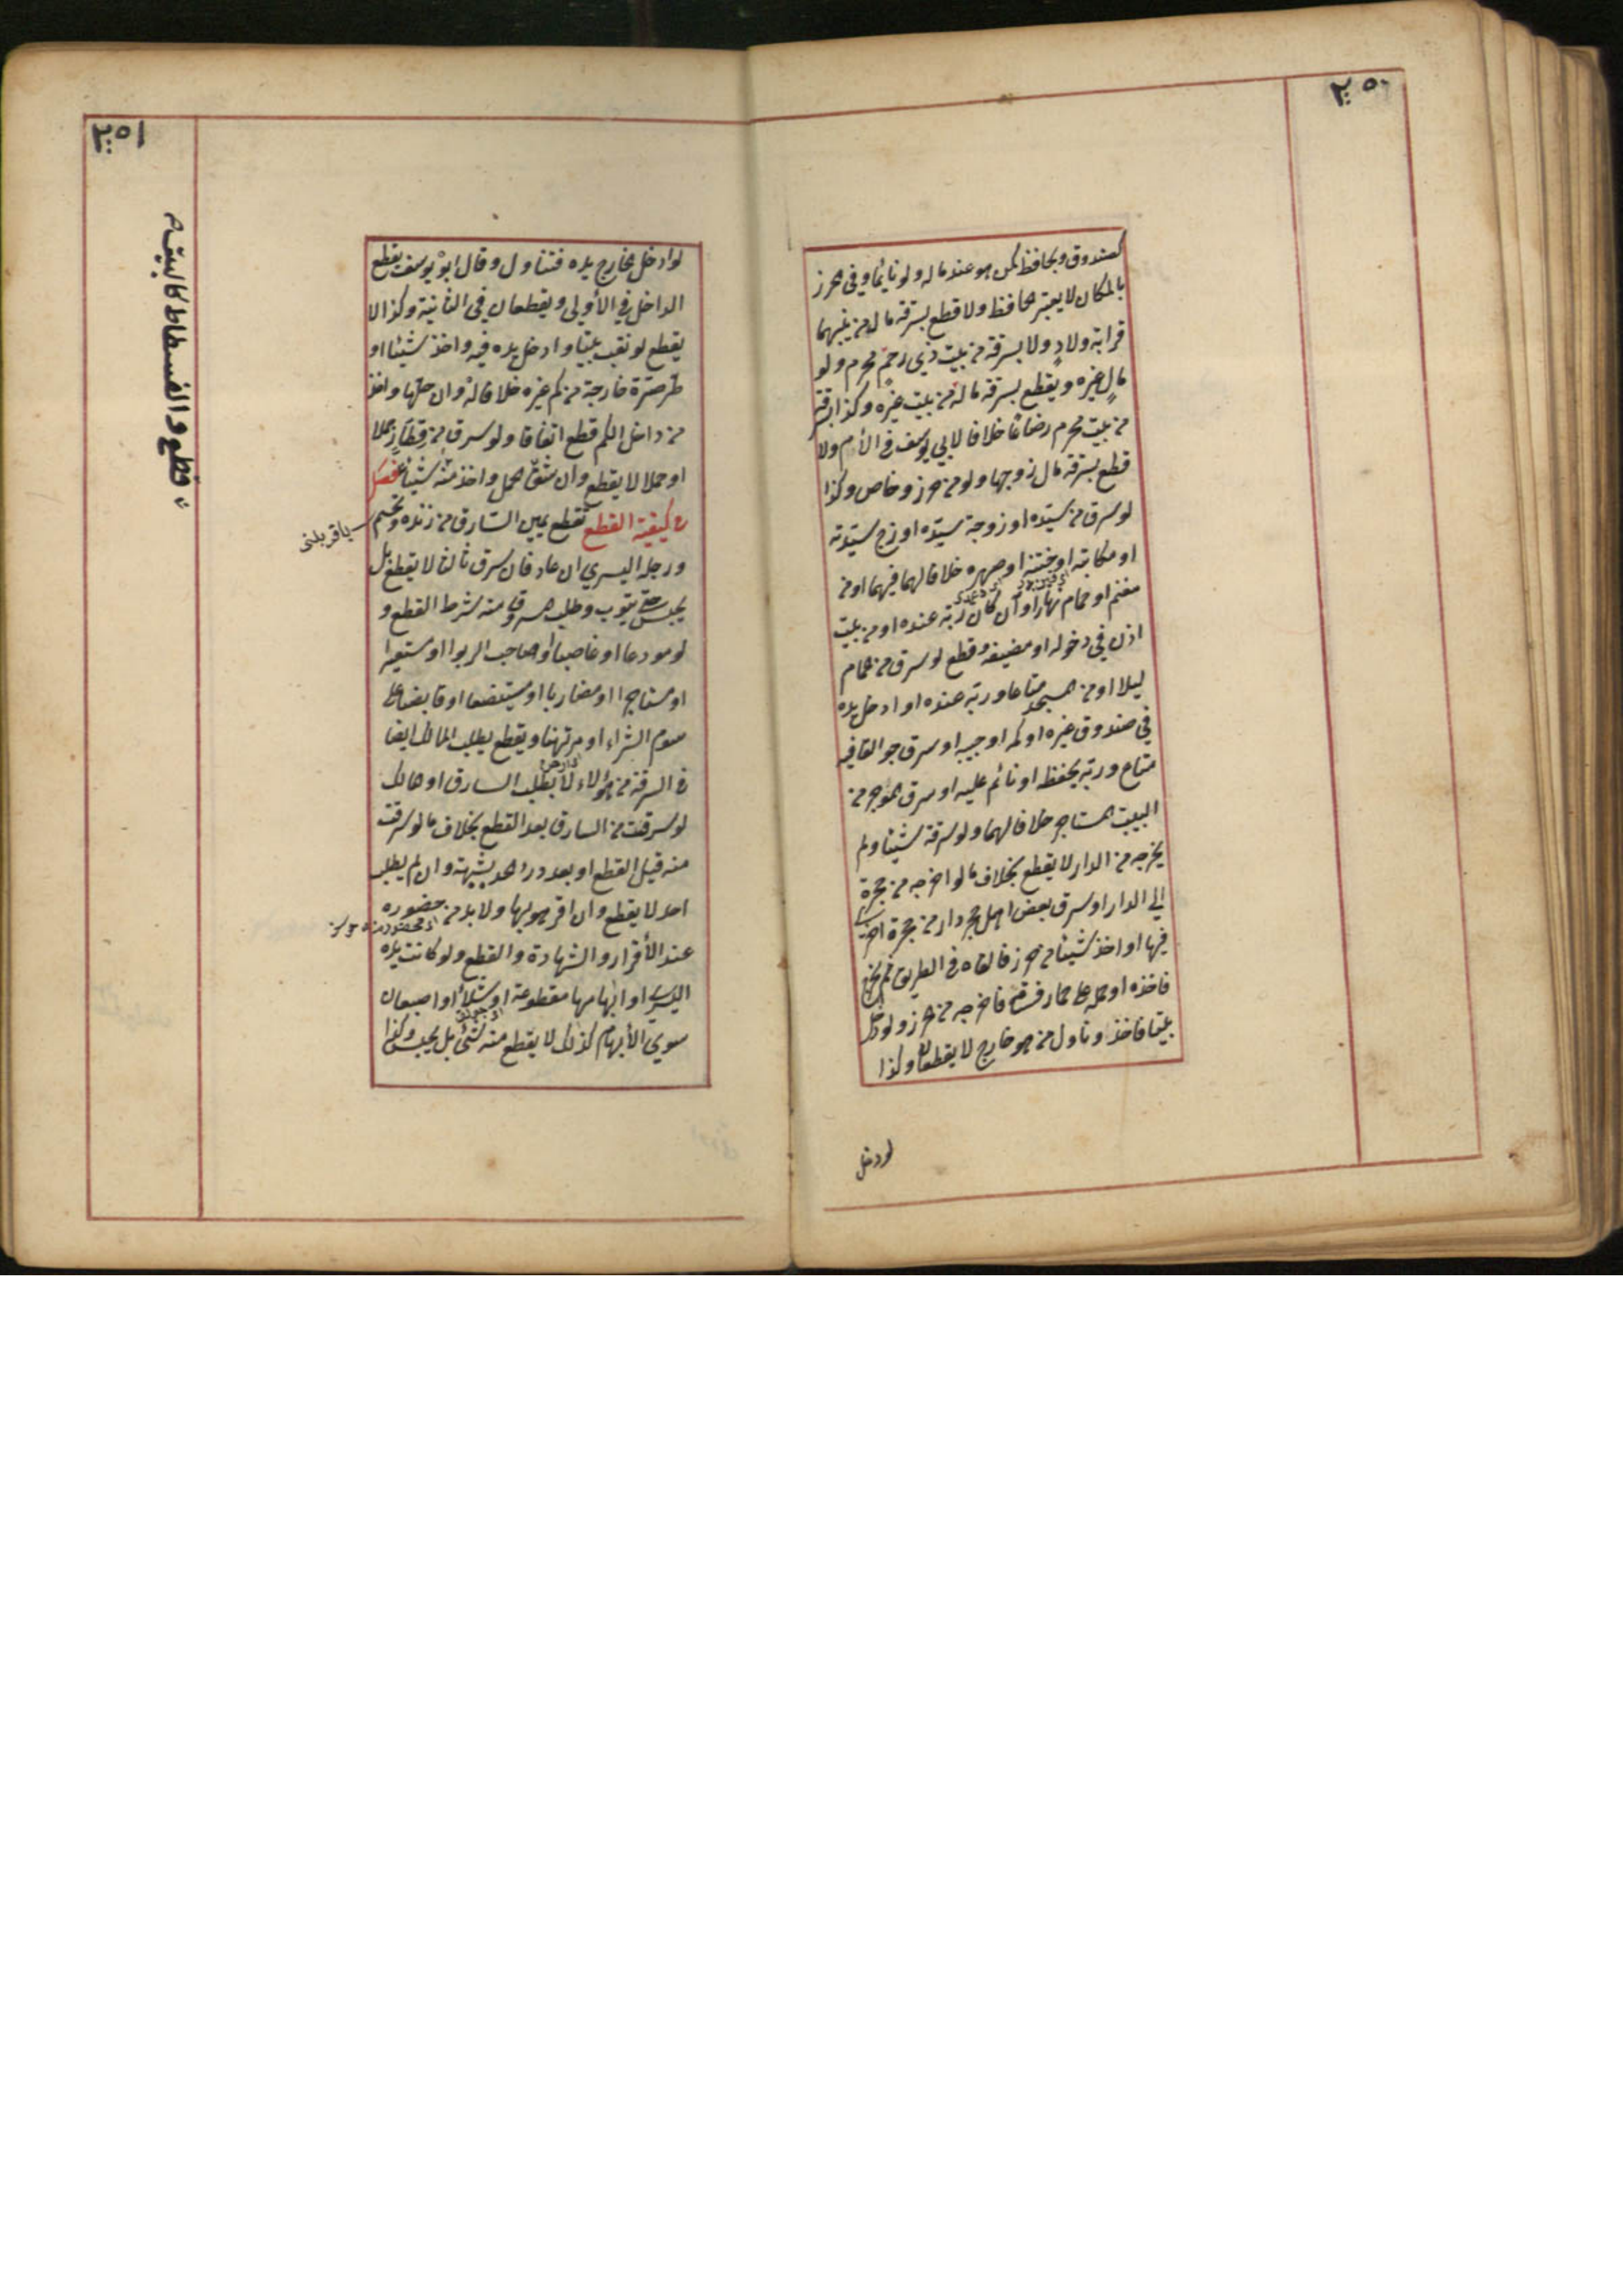 ٢٥٠
كصندوق وبحافظ كمن هو عند ماله ولو نائما وفي حرز
بالمكان لا يعتبر الحافظ ولا قطع بسرقة مال من بينهما
قرابة ولاد ولا بسرقة من بيت ذي رحم محرم ولو
مال غيره ويقطع بسرقة ماله من بيت غيره وكذا بسرقة
من بيت محرم رضاعا خلافا لابي يوسف في الأم ولا
قطع بسرقة مال زوجها ولو من حرز وخاص وكذا
لو سرق من سيّده او زوجة سيّده او زوج سيّدته
او مكاتبه او ختنه او صهره خلافا لهما فيهما او من
مغنم او حمام نهارا وان كان ربّه عنده او من بيت
اذن في دخوله او مضيفه وقطع لو سرق من حمام
ليلا او من المسجد متاعا وربّه عنده او ادخل يده
في صندوق غيره او كمه او جيبه او سرق جوالقا فيه
متاع وربّه يحفظ او نائم عليه او سرق المؤجر من
البيت المستاجر خلافا لهما ولو سرقة شيئا ولم
يخرجه من الدار لا يقطع بخلاف ما لو اخرجه من حجرة
الي الدار او سرق بعض اهل حجر دار من حجرة اخرى
فيها او اخذ شيئا من حرز فالقاه في الطريق ثم خرج
فاخذه او حمله على حمار فساقه فاخرجه من حرز ولو دخل
بيتا فاخذ وناول من هو خارج لا يقطعان وكذا
لو دخل
٢٥١
لو ادخل الخارج يده فتناول وقال ابو يوسف يقطع
الداخل في الأولى ويقطعان في الثانية وكذا لا
يقطع لو نقب بيتا وادخل يده فيه واخذ شيئا او
طرّ صرّة خارجة من كم غيره خلافا له وان حلّها واخذ
من داخل الكم قطع اتفاقا ولو سرق من قطار جملا
او حملا لا يقطع وان شقّ الحمل واخذ منه شيئا قطع فصل
في كيفية القطع تقطع يمين السّارق من زنده وتحسم
ورجله اليسري ان عاد فان سرق ثالثا لا يقطع بل
يحبس حتى يتوب وطلب المسروق منه شرط القطع و
لو مودعا او غاصبا او صاحب الربوا او مستعيرا
او مستاجرا او مضاربا او مستبضعا او قابضا على
سوم الشراء او مرتهنا ويقطع بطلب المالك ايضا
في السرقة من هؤلاء لا بطلب السارق او مالك
لو سرقت من السارق بعد القطع بخلاف ما لو سرقت
منه قبل القطع او بعد درء الحد بشبهة وان لم يطلب
احد لا يقطع وان اقر هو بها ولا بد من حضوره
عند الأقرار والشهادة والقطع ولو كانت يده
اليسرى او ابهامها مقطوعة او شلاء او اصبعان
سوي الأبهام كذلك لا يقطع منه شئ بل يحبس وكذا
قطع والفسطاط كالبيت م